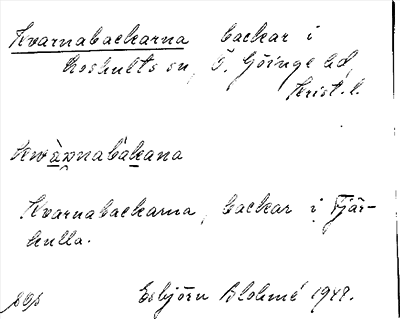 Kvarnabackarna backar i
Loshults sn, Ö. Göinge hd,
Krist. l.
Kvarnabackarna, backar i Tjär-
kulla.
Esbjörn Blohmé 1948.